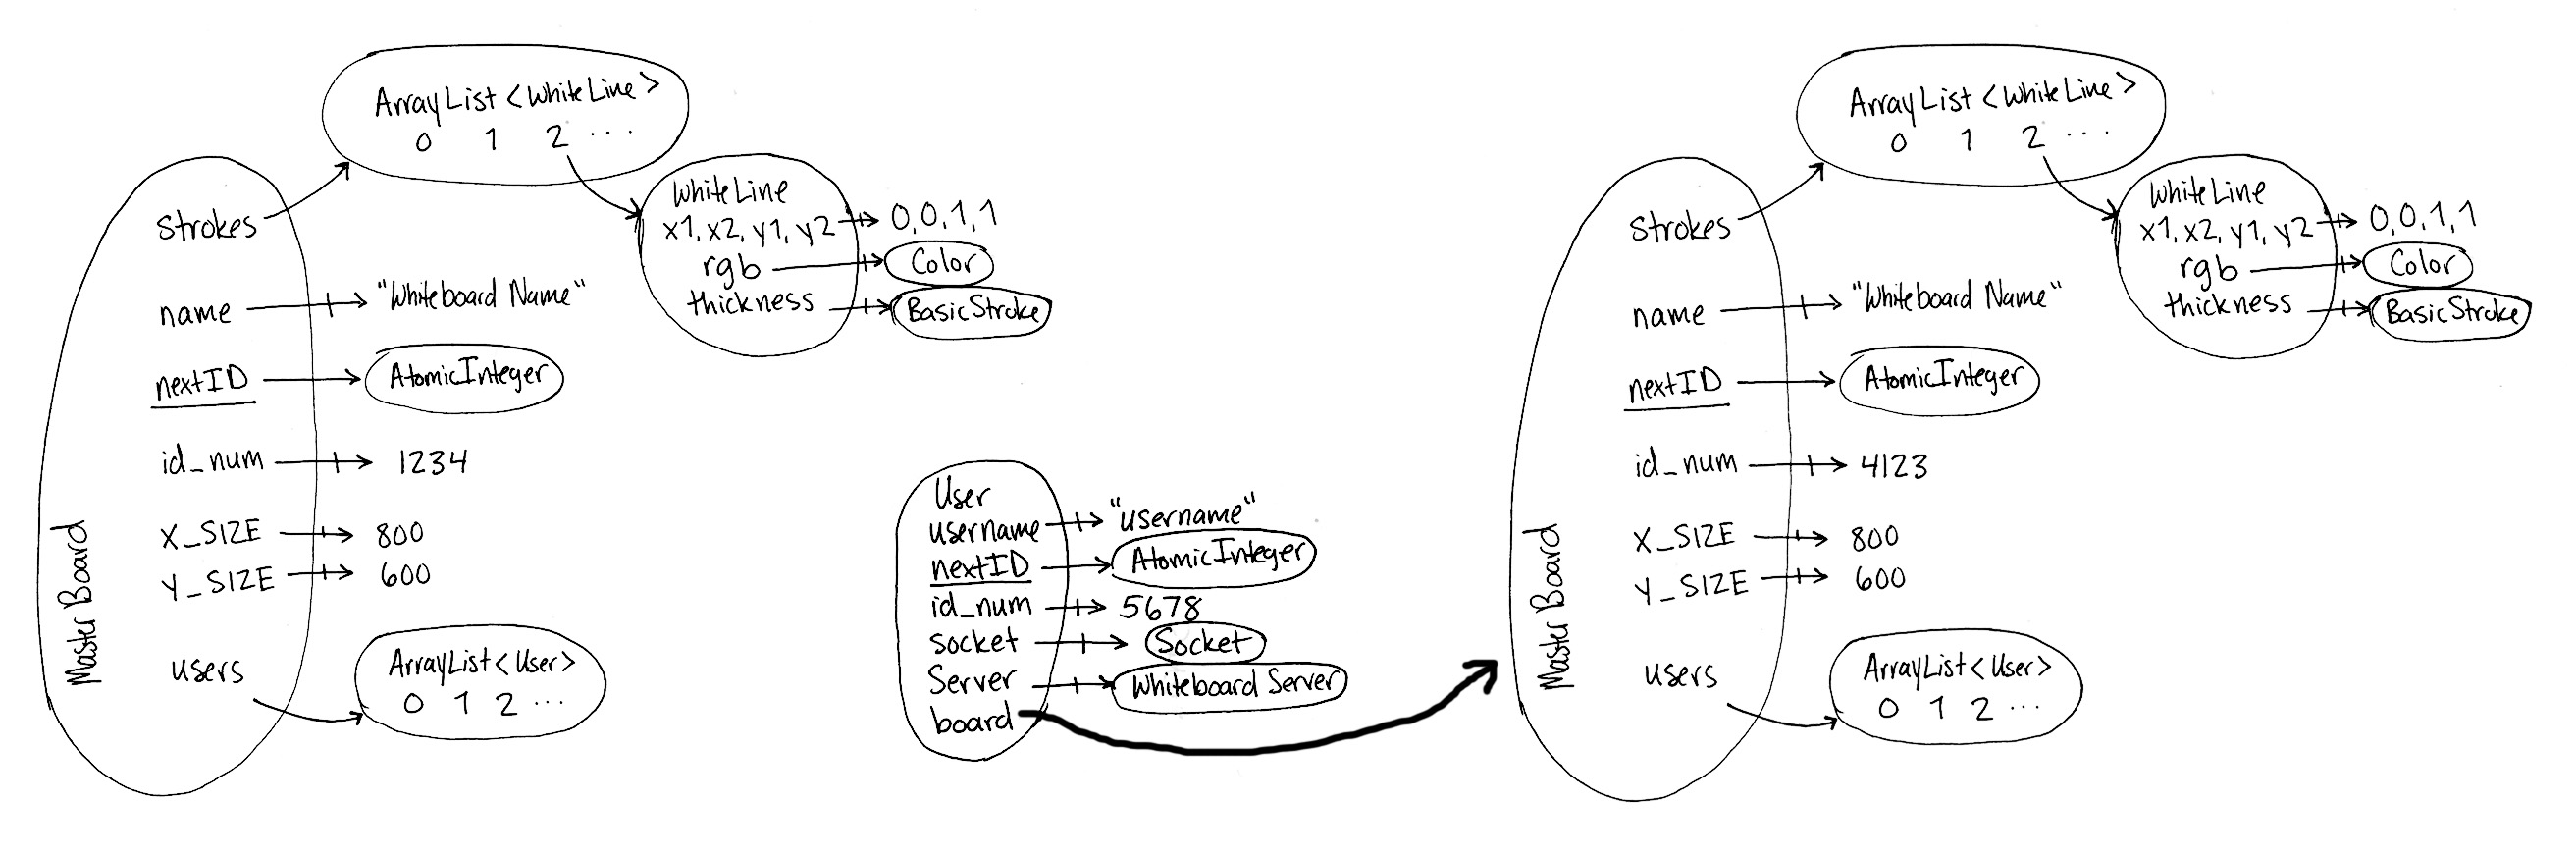 ArrayList <WhiteLine>
0 1 2 ...
WhiteLine
x1, x2, y1, y2 0,0,1,1
rgb Color
thickness BasicStroke
Strokes
name "Whiteboard Name"
nextID AtomicInteger
id_num 1234
X_SIZE 800
Y_SIZE 600
users ArrayList<User>
0 1 2 ...
Master Board
User
username "username"
nextID AtomicInteger
id_num 5678
socket Socket
Server Whiteboard Server
board
ArrayList <WhiteLine>
0 1 2 ...
WhiteLine
x1, x2, y1, y2 0,0,1,1
rgb Color
thickness BasicStroke
Strokes
name "Whiteboard Name"
nextID AtomicInteger
id_num 4123
X_SIZE 800
Y_SIZE 600
users ArrayList<User>
0 1 2 ...
Master Board